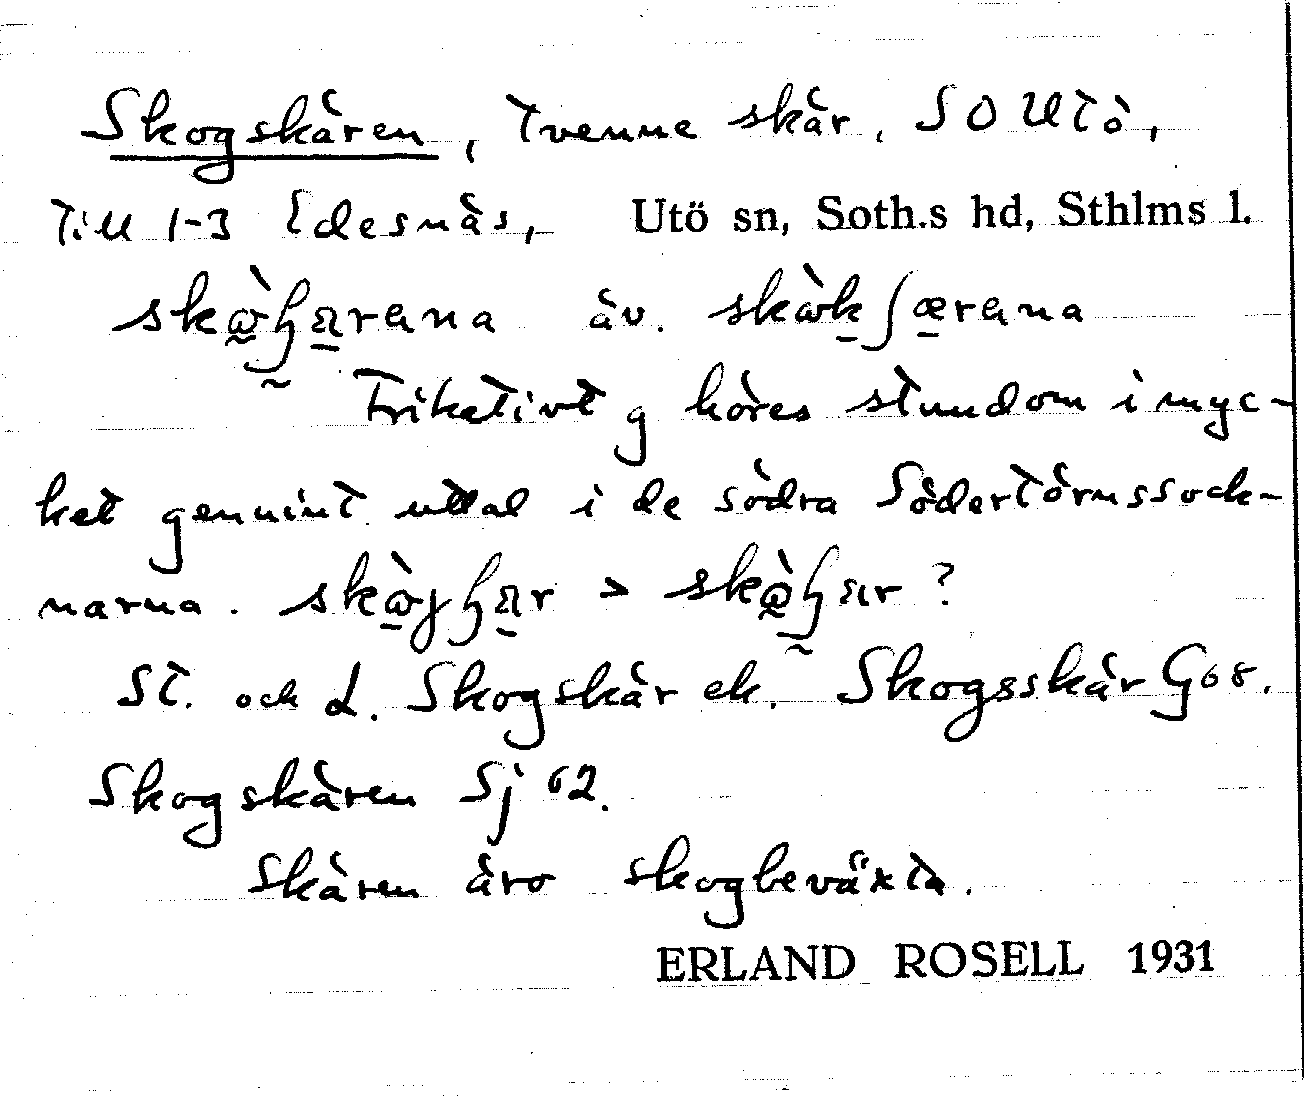 Skogskären, tvenne skär, SO Utö,
till 1-3 Edesnäs, Utö sn, Soth.s hd, Sthlms l.
äv.
Frikativt g höres stundom i myc-
ket genuint uttal i de södra Södertörnssock-
narna. > ?
St. och L. Skogskär ek. Skogsskär G 68.
Skogskären Sj 62.
Skären äro skogbeväxta.
ERLAND ROSELL 1931